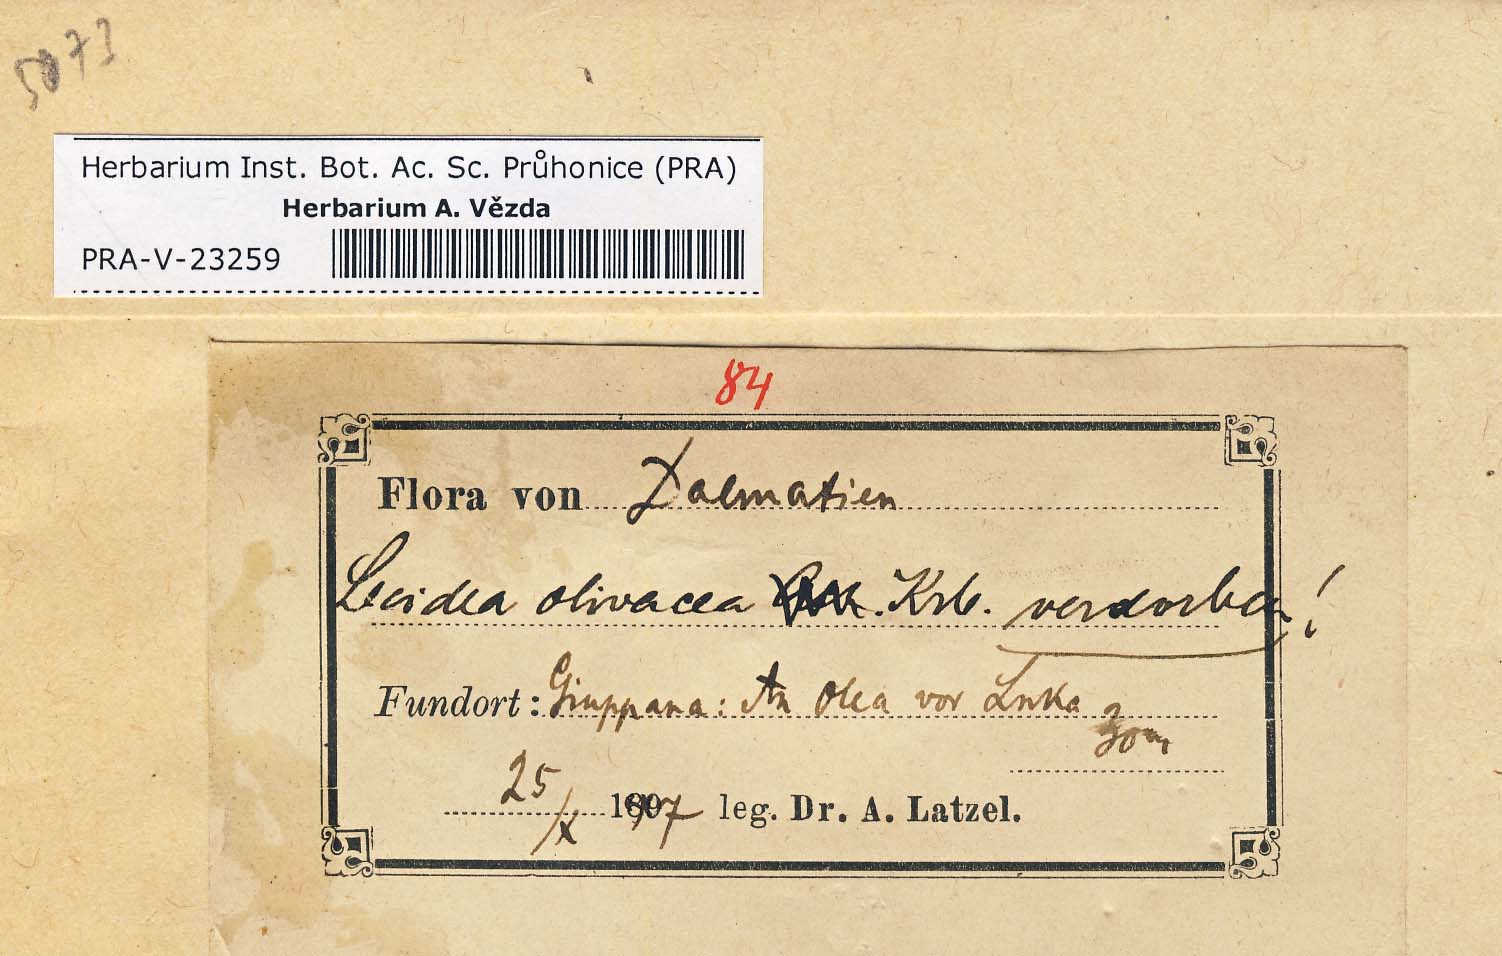 5073
Herbarium Inst. Bot. Ac. Sc. Průhonice (PRA)
Herbarium A. Vězda
PRA-V-23259
84
Flora von Dalmatien
Lecidea olivacea Krb. verdorben!
Fundort: Giuppana: An Olea vor Luka
30m
25/X 1907 leg. Dr. A. Latzel.